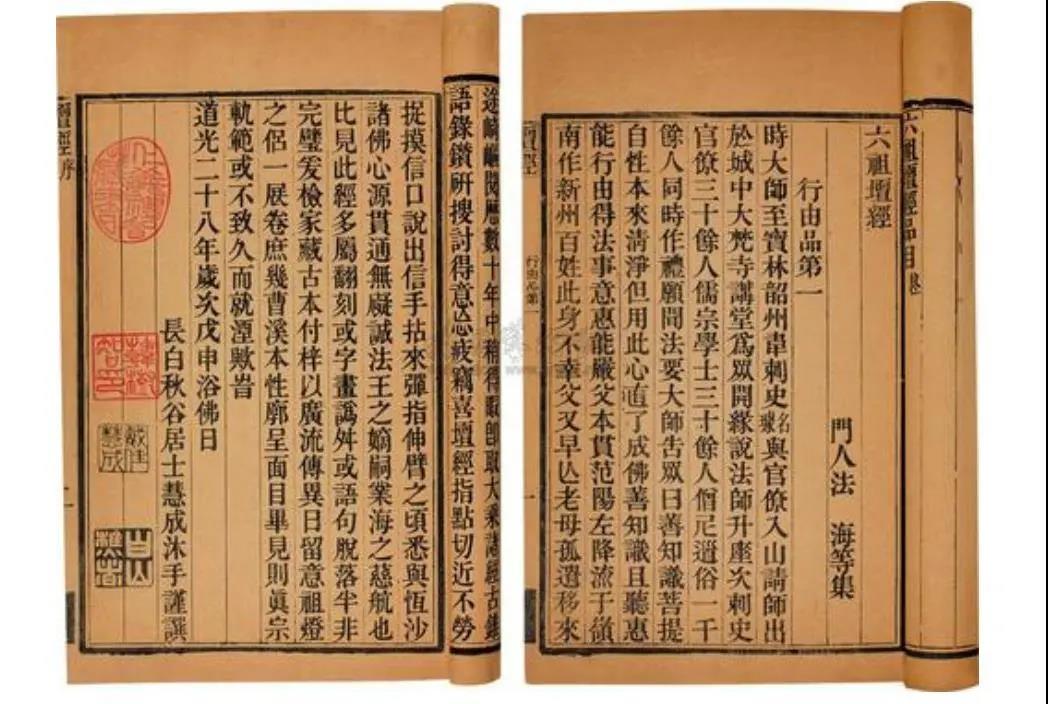 途崎嶇閱歷數十年中稍得即取大乘諸經古錐
語錄鑽硏搜討得意忘疲竊喜壇經指點切近不勞
捉摸信口說出信手拈來彈指伸臂之頃悉與恆沙
諸佛心源貫通無礙誠法王之嫡嗣業海之慈航也
比見此經多屬翻刻或字畫譌舛或語句脫落半非
完璧爰檢家藏古本付梓以廣流傳異日留意祖燈
之侶一展卷庶幾曹溪本性廓呈面目畢見則眞宗
軌範或不致久而就湮歟旹
道光二十八年歲次戊申浴佛日
長白秋谷居士慧成沐手謹譔
壇經序
二
六祖壇經品目
六祖壇經
門人法 海等集
行由品第一
時大師至寶林韶州韋刺史名璩與官僚入山請師出
於城中大梵寺講堂爲眾開緣說法師升座次刺史
官僚三十餘人儒宗學士三十餘人僧尼道俗一千
餘人同時作禮願聞法要大師告眾曰善知識菩提
自性本來淸淨但用此心直了成佛善知識且聽惠
能行由得法事意惠能嚴父本貫范陽左降流于嶺
南作新州百姓此身不幸父又早亾老母孤遺移來
壇經
行由品第一
一